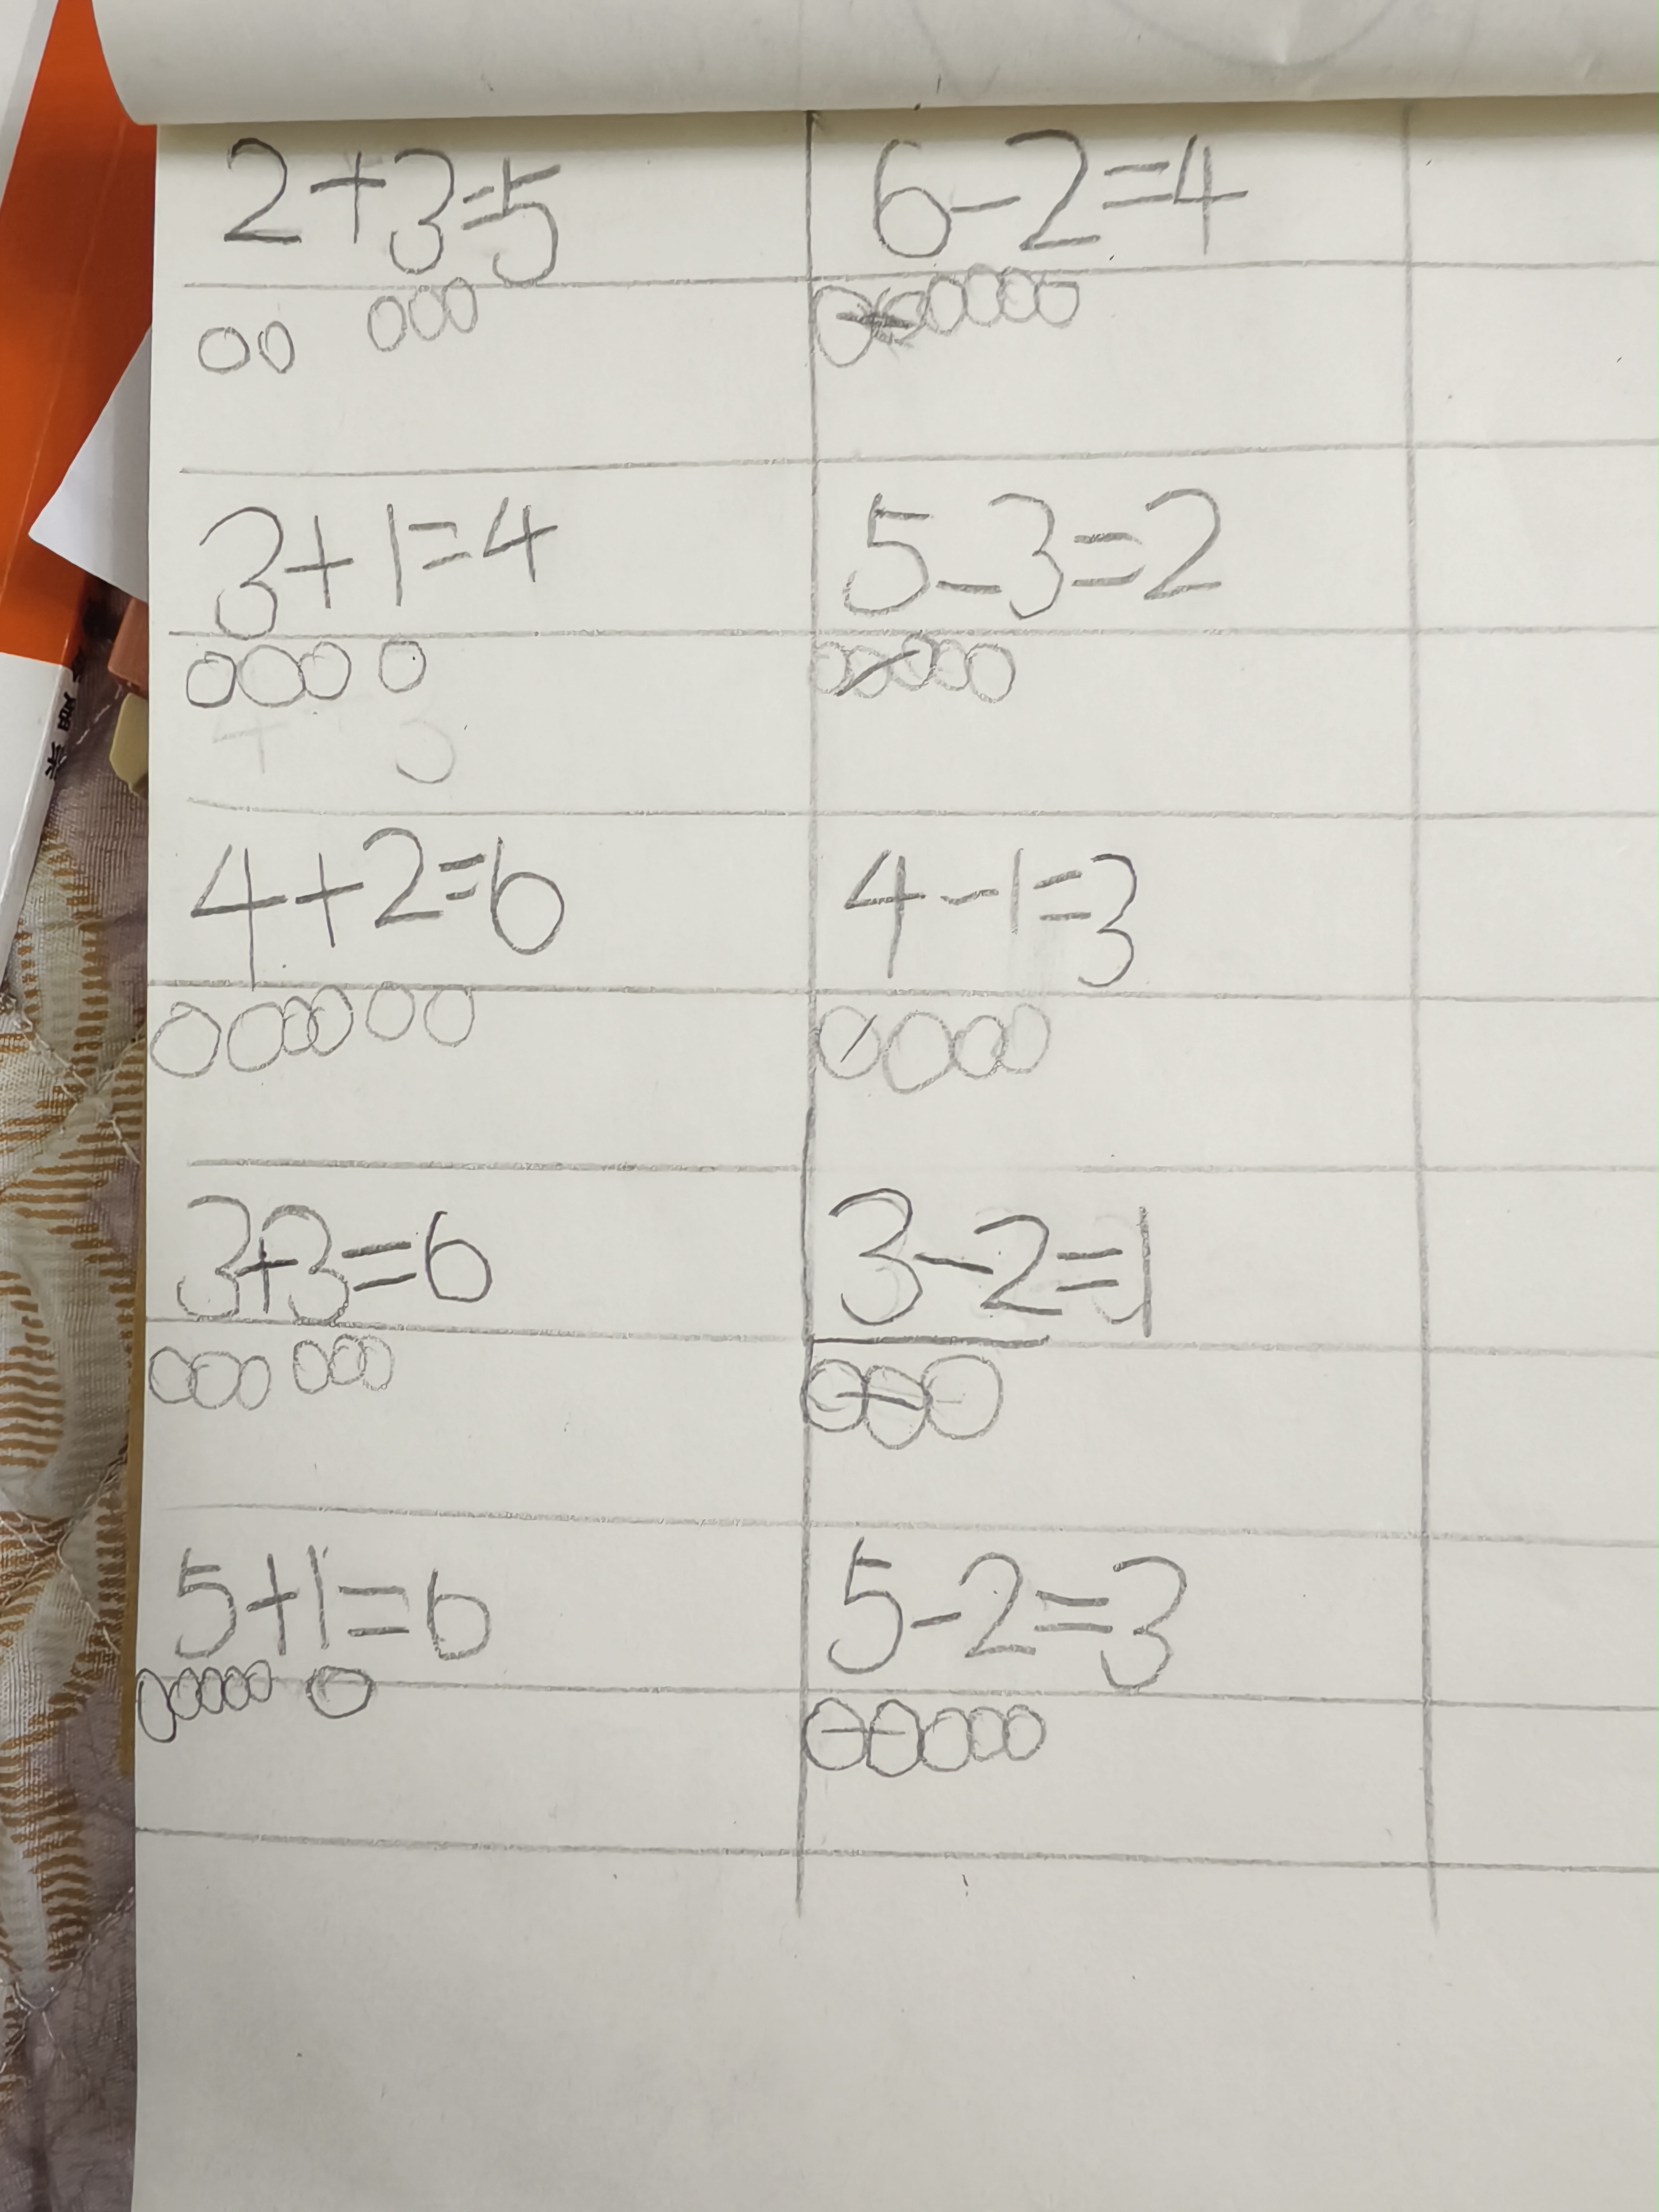 2+3=5
6-2=4
3+1=4
5-3=2
4+2=6
4-1=3
3+3=6
3-2=1
5+1=6
5-2=3